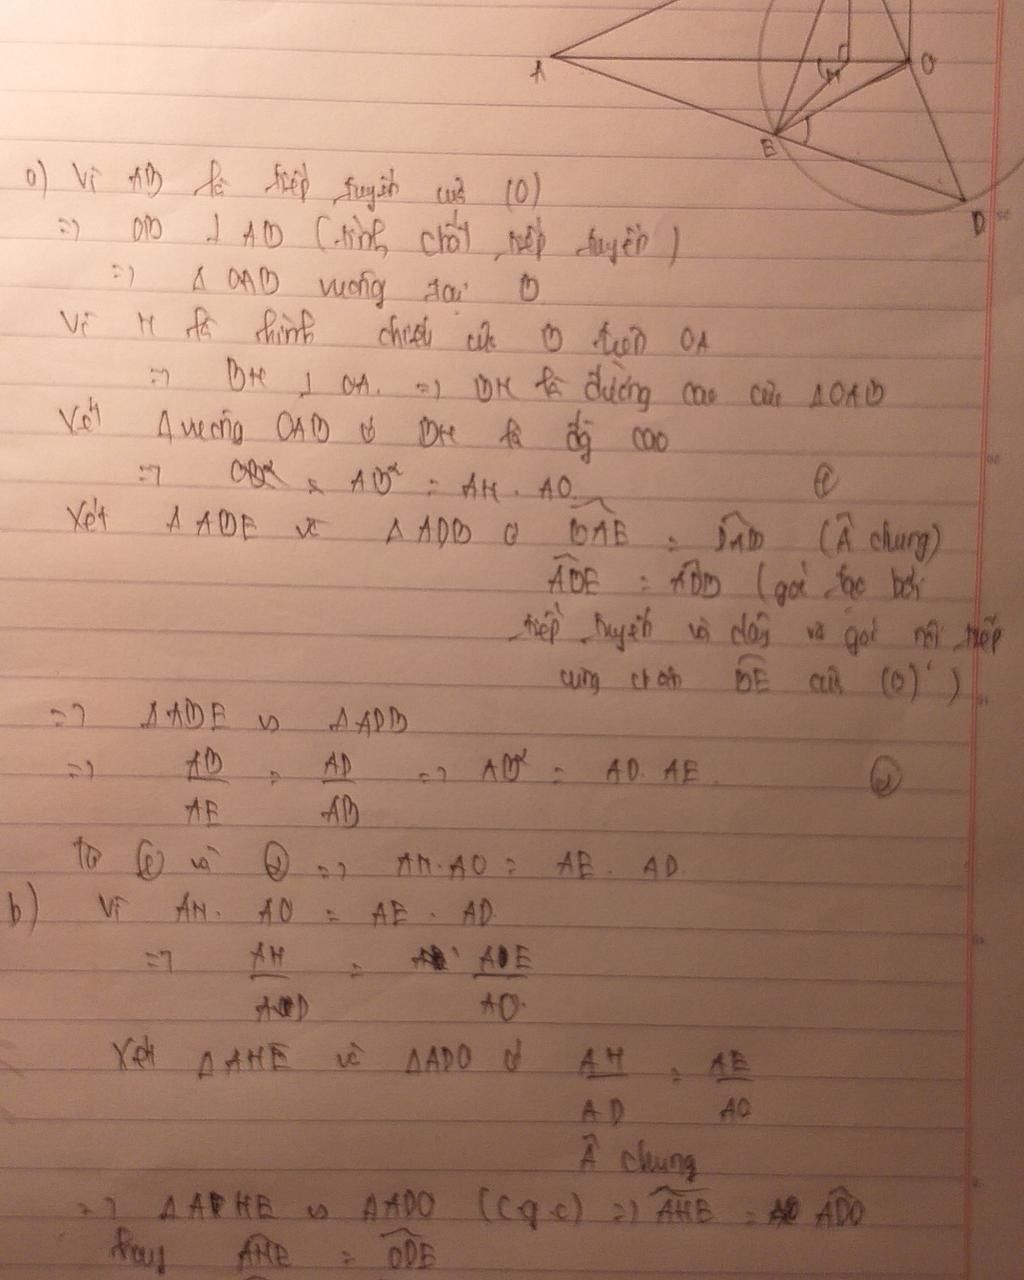 A
O
H
E
D
a) Vì AB là tiếp tuyến của (O)
=> OB ⊥ AB (tính chất tiếp tuyến)
=> Δ OAB vuông tại B
Vì H là hình chiếu của B trên OA
=> BH ⊥ OA. => BH là đường cao của ΔOAB
Xét Δ vuông OAB có BH là đg cao
=> AB² = AH . AO. ①
Xét Δ ABE và Δ ADB có \widehat{BAE} = \widehat{DAB} (Â chung)
\widehat{ABE} = \widehat{ADB} (góc tạo bởi
tiếp tuyến và dây và góc nội tiếp
cùng chắn \widehat{BE} của (O))
=> Δ ABE ∽ Δ ADB
=> AB/AE = AD/AB => AB² = AD. AE. ②
Từ ① và ② => AH.AO = AE . AD.
b) Vì AH. AO = AE . AD.
=> AH/AD = AE/AO.
Xét Δ AHE và ΔADO có AH/AD = AE/AO
Â chung
=> Δ AHE ∽ ΔADO (c.g.c) => \widehat{AHE} = \widehat{ADO}
hay \widehat{AHE} = \widehat{ODE}